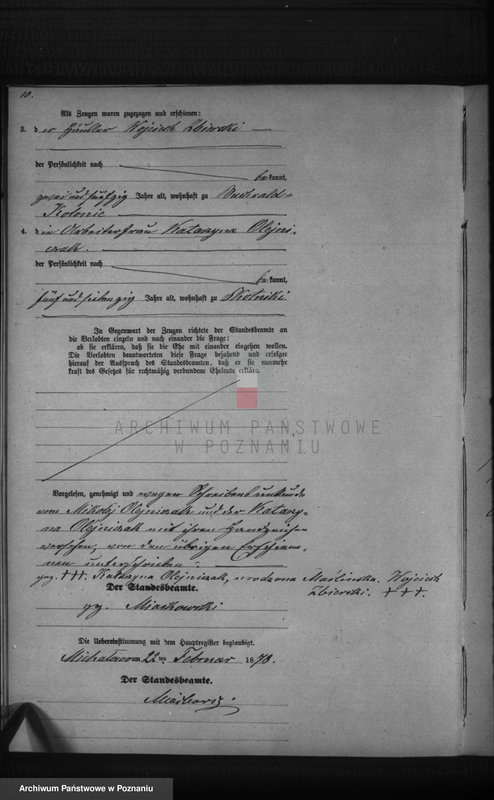 10.
Als Zeugen waren zugezogen und erschienen:
3. der Häusler Wojciech Zbierski
der Persönlichkeit nach
bekannt,
zwei und fünfzig Jahre alt, wohnhaft zu Buchwald-
Kolonie
4. die Arbeiterfrau Katarzyna Olejni-
czak.
der Persönlichkeit nach
bekannt,
fünf und siebenzig Jahre alt, wohnhaft zu Skotniki
In Gegenwart der Zeugen richtete der Standesbeamte an
die Verlobten einzeln und nach einander die Frage:
ob sie erklären, daß sie die Ehe mit einander eingehen wollen.
Die Verlobten beantworteten diese Frage bejahend und erfolgte
hierauf der Ausspruch des Standesbeamten, daß er sie nunmehr
kraft des Gesetzes für rechtmäßig verbundene Eheleute erkläre.
ARCHIWUM PAŃSTWOWE
W POZNANIU
Vorgelesen, genehmigt und wegen Schreibensunkunde
von Mikołaj Olejniczak und der Katarzy-
na Olejniczak mit ihren Handzeichen
versehen, von den übrigen Erschiene-
nen unterschrieben.
gez. +++. Katarzyna Olejniczak, urodzona Maślinska. Wojciech
Zbierski. +++.
Der Standesbeamte.
gez. Miaskowski
Die Uebereinstimmung mit dem Hauptregister beglaubigt.
am 22 ten Februar 1878.
Der Standesbeamte.
Archiwum Państwowe w Poznaniu
Archiwum Państwowe w Poznaniu